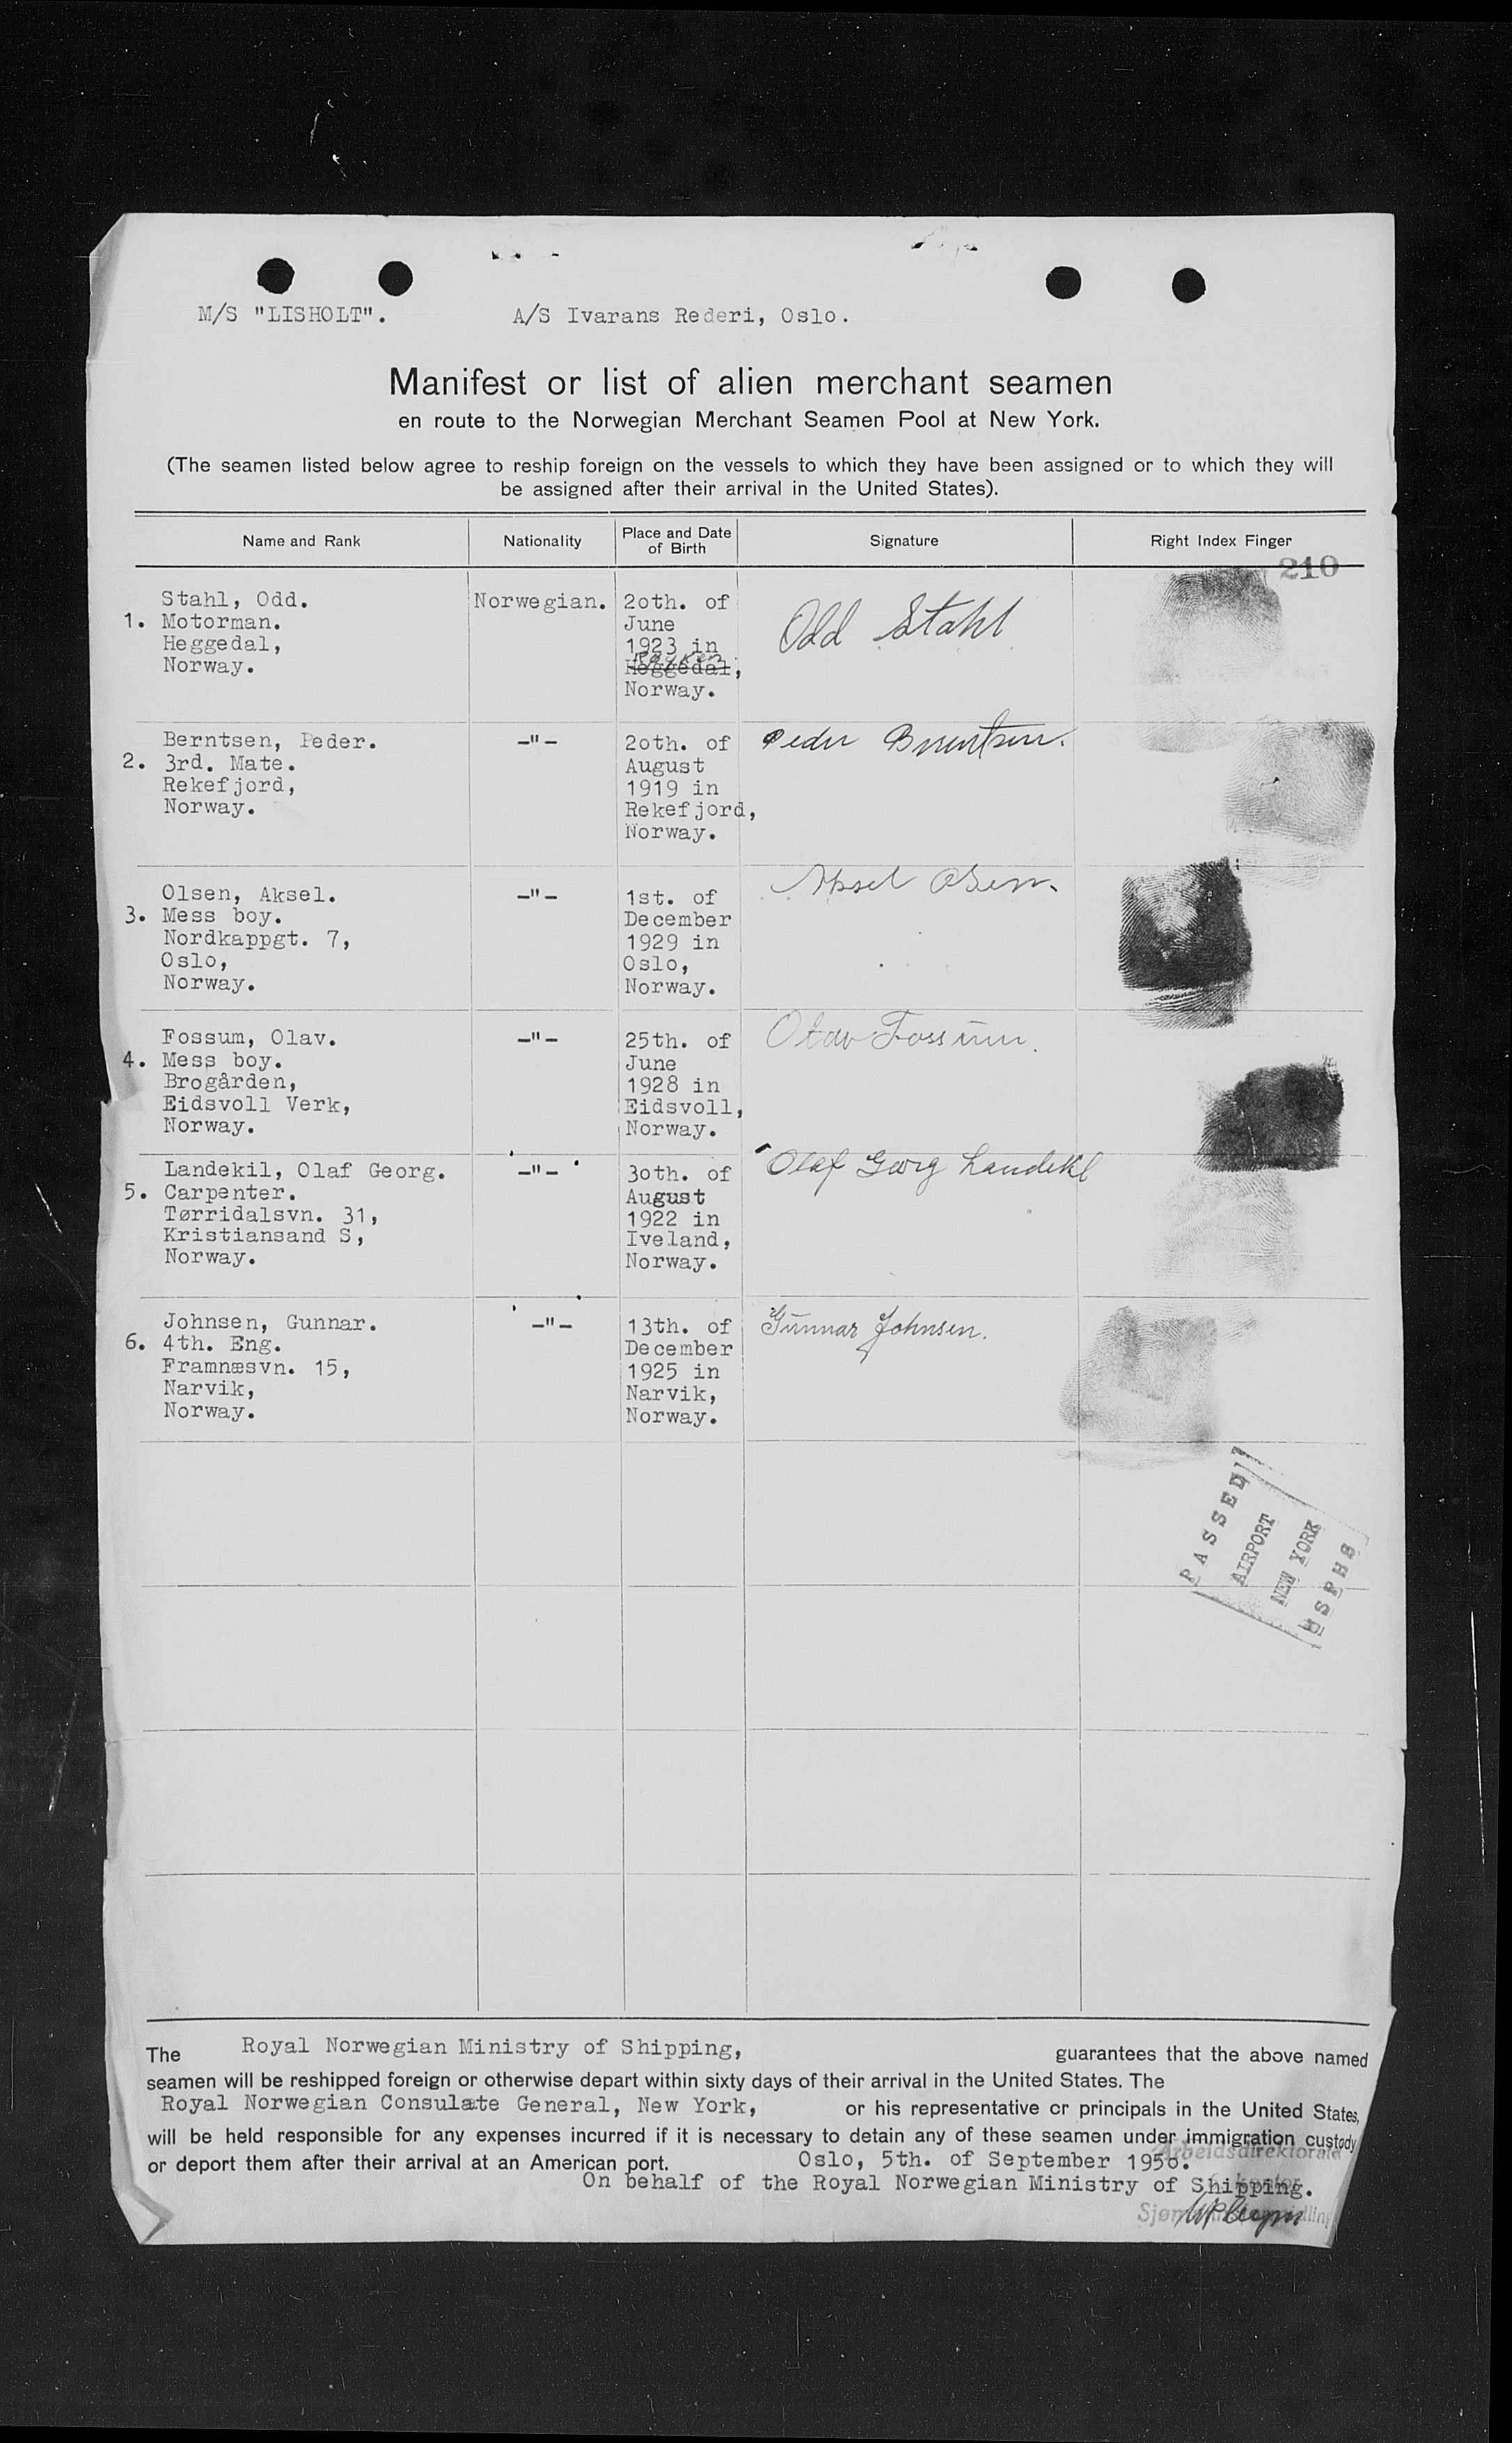 M/S "LISHOLT". A/S Ivarans Rederi, Oslo.
Manifest or list of alien merchant seamen
en route to the Norwegian Merchant Seamen Pool at New York.
(The seamen listed below agree to reship foreign on the vessels to which they have been assigned or to which they will
be assigned after their arrival in the United States).
Name and Rank
Nationality
Place and Date
of Birth
Signature
Right Index Finger
210
1.
Stahl, Odd.
Motorman.
Heggedal,
Norway.
Norwegian.
2oth. of
June
1923 in
Heggedal,
Norway.
Odd Stahl
2.
Berntsen, Peder.
3rd. Mate.
Rekefjord,
Norway.
-"-
2oth. of
August
1919 in
Rekefjord,
Norway.
Peder Berntsen.
3.
Olsen, Aksel.
Mess boy.
Nordkappgt. 7,
Oslo,
Norway.
-"-
1st. of
December
1929 in
Oslo,
Norway.
Aksel Olsen.
4.
Fossum, Olav.
Mess boy.
Brogården,
Eidsvoll Verk,
Norway.
-"-
25th. of
June
1928 in
Eidsvoll,
Norway.
Olav Fossum.
5.
Landekil, Olaf Georg.
Carpenter.
Tørridalsvn. 31,
Kristiansand S,
Norway.
-"-
3oth. of
August
1922 in
Iveland,
Norway.
Olaf Georg Landekil
6.
Johnsen, Gunnar.
4th. Eng.
Framnæsvn. 15,
Narvik,
Norway.
-"-
13th. of
December
1925 in
Narvik,
Norway.
Gunnar Johnsen.
PASSED
AIRPORT
NEW YORK
USPHS
The Royal Norwegian Ministry of Shipping, guarantees that the above named
seamen will be reshipped foreign or otherwise depart within sixty days of their arrival in the United States. The
Royal Norwegian Consulate General, New York, or his representative or principals in the United States,
will be held responsible for any expenses incurred if it is necessary to detain any of these seamen under immigration custody
or deport them after their arrival at an American port. Oslo, 5th. of September 195o.
Arbeidsdirektoratet
On behalf of the Royal Norwegian Ministry of Shipping.
kontor